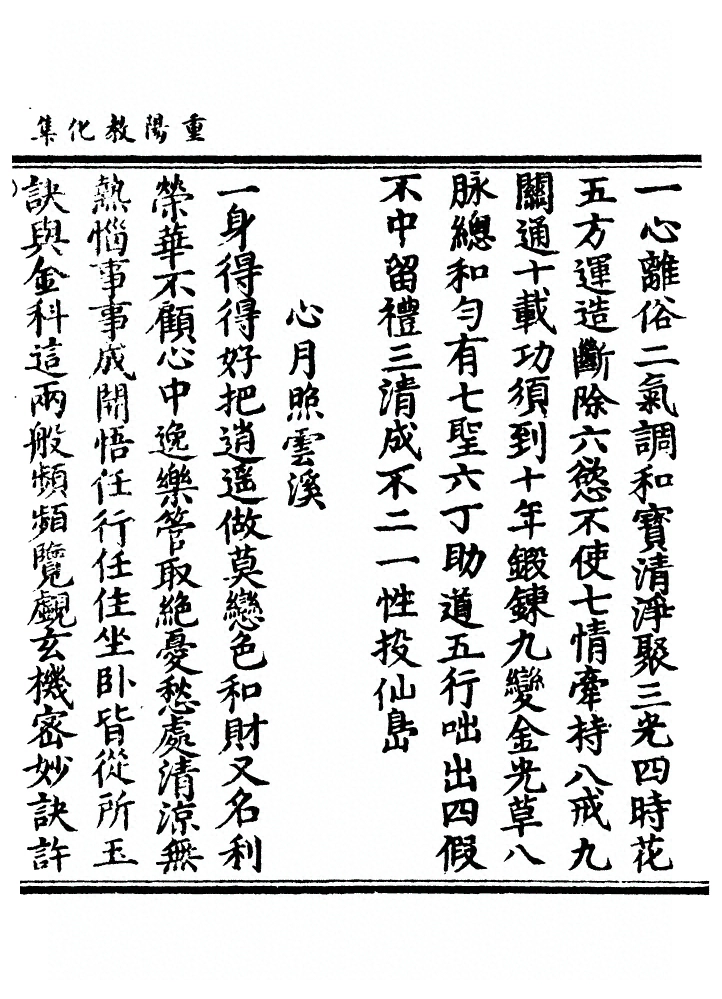 重陽教化集
一心離俗二氣調和寶清淨聚三光四時花
五方運造斷除六慾不使七情牽持八戒九
關通十載功須到十年鍛鍊九變金光草八
脉總和勻有七聖六丁助道五行咄出四假
不中留禮三清成不二一性投仙島
心月照雲溪
一身得得好把逍遥做莫戀色和財又名利
榮華不顧心中逸樂管取絶憂愁處清涼無
熱惱事事成開悟任行任住坐卧皆從所玉
訣與金科這兩般頻頻覽觑玄機密妙訣許